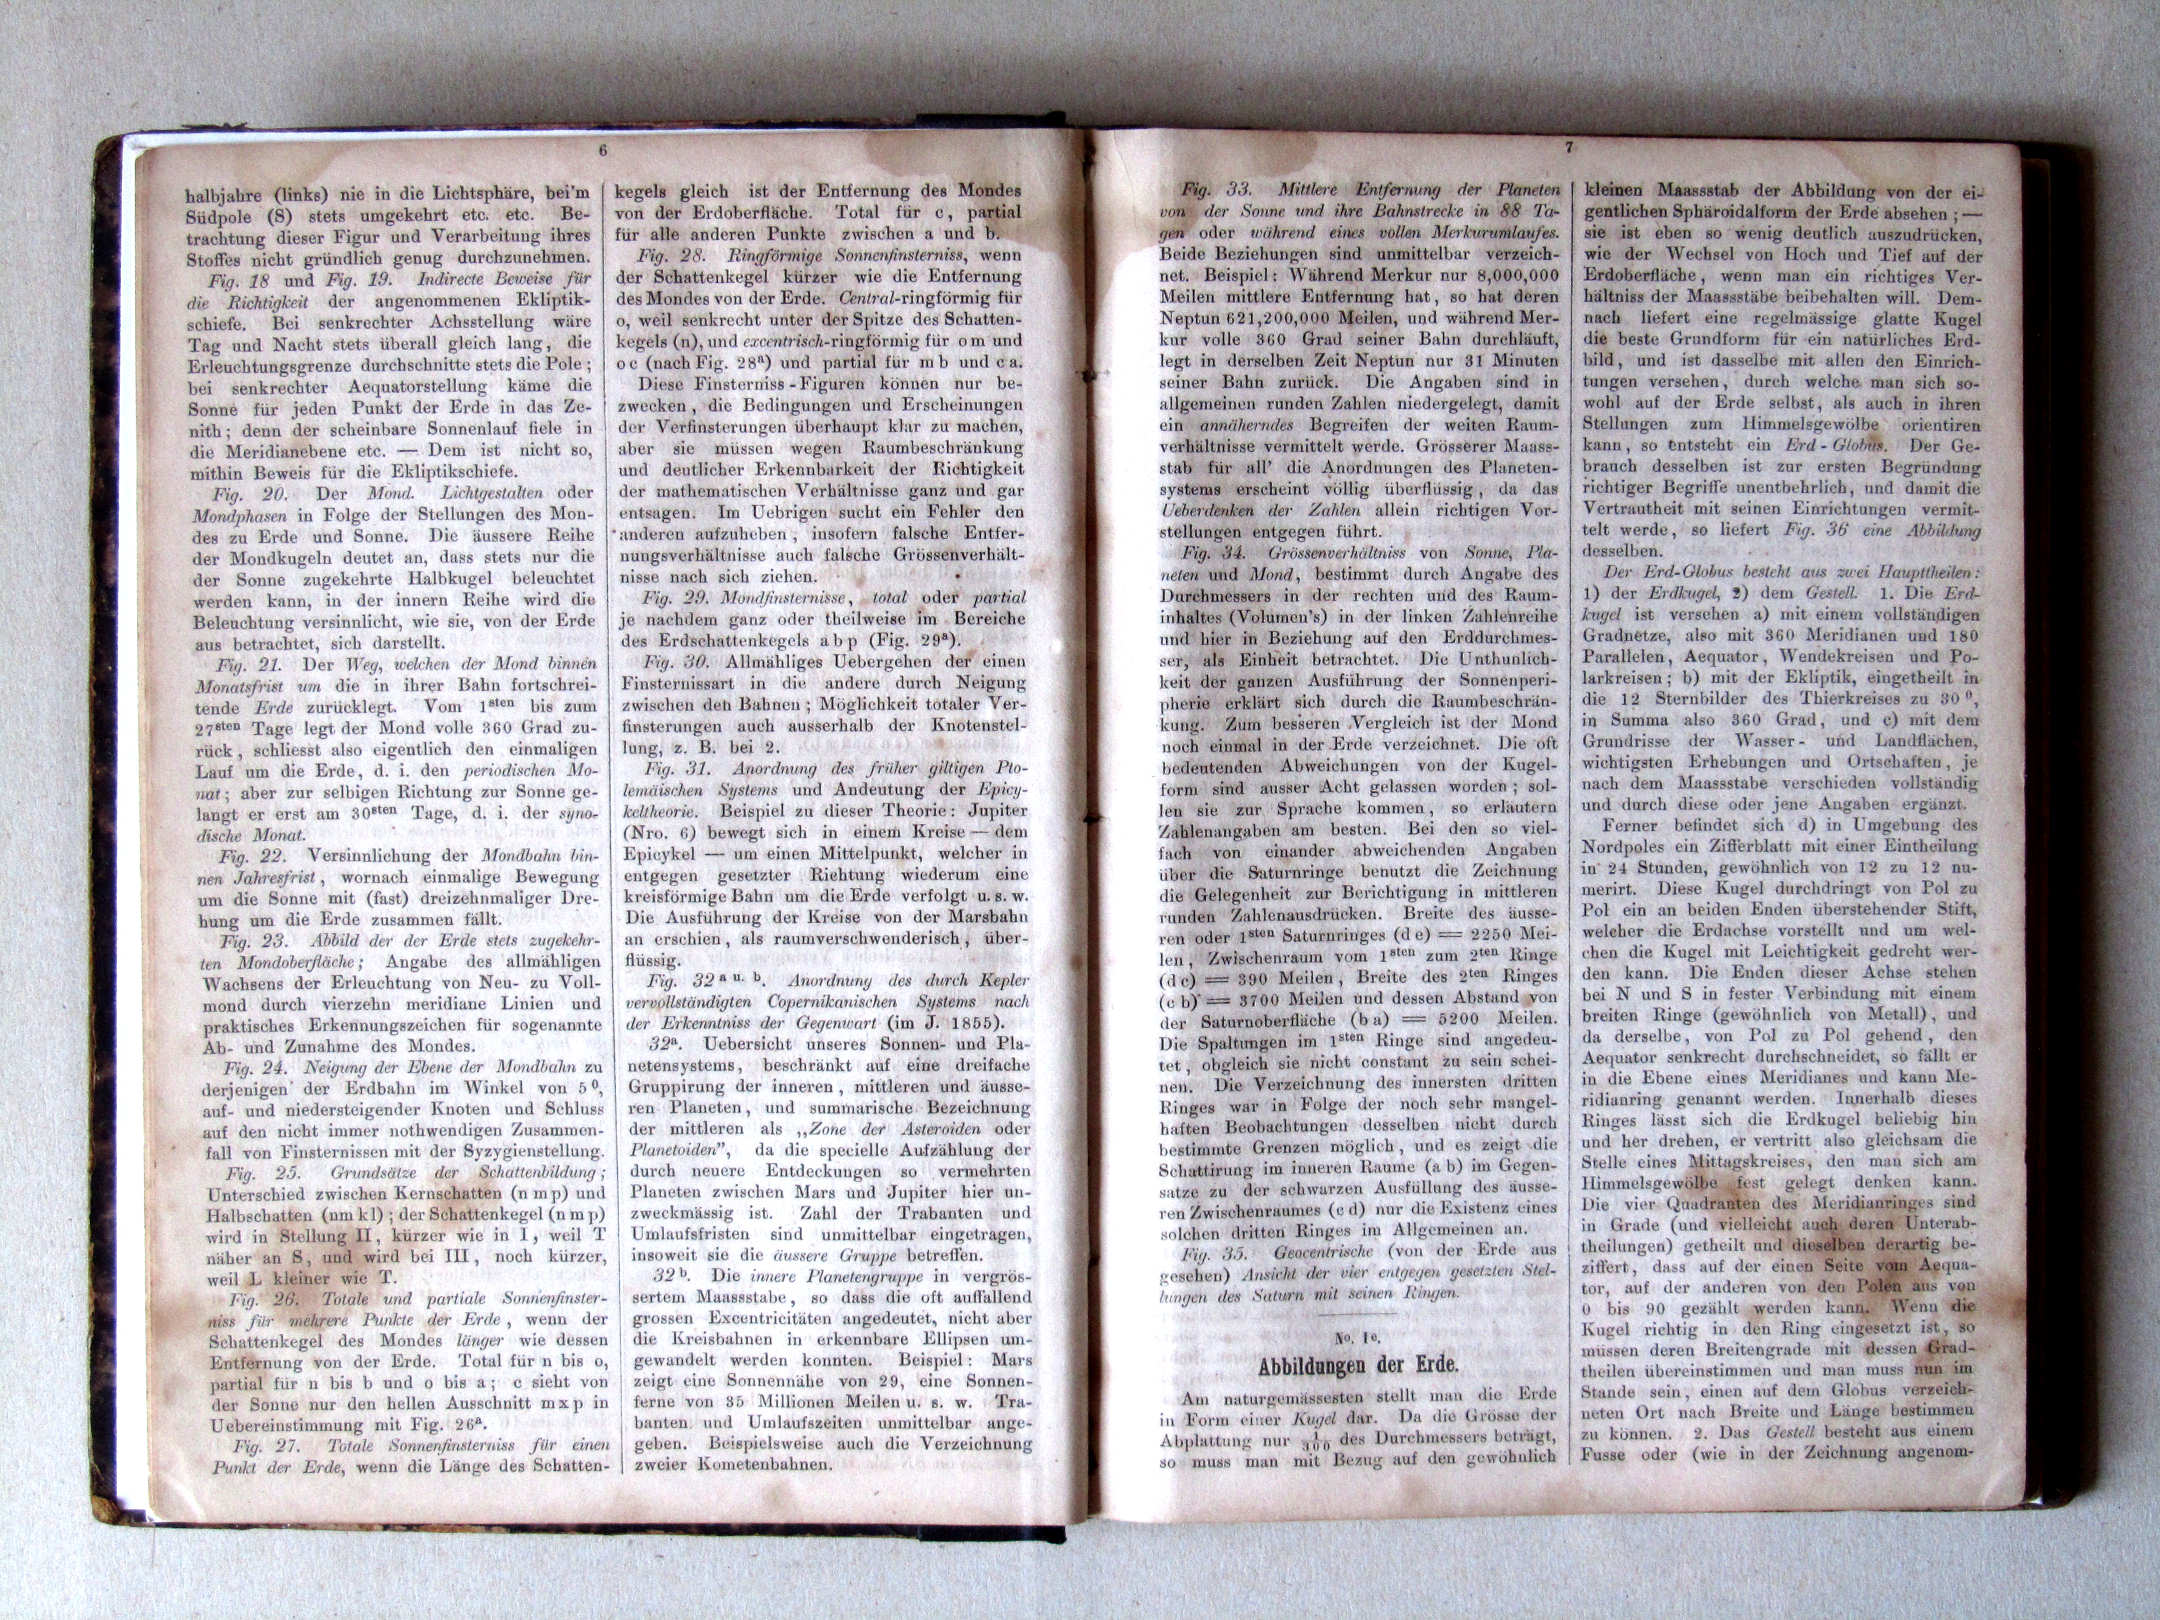 6
halbjahre (links) nie in die Lichtsphäre, bei'm
Südpole (S) stets umgekehrt etc. etc. Be-
trachtung dieser Figur und Verarbeitung ihres
Stoffes nicht gründlich genug durchzunehmen.
Fig. 18 und Fig. 19. Indirecte Beweise für
die Richtigkeit der angenommenen Ekliptik-
schiefe. Bei senkrechter Achsstellung wäre
Tag und Nacht stets überall gleich lang, die
Erleuchtungsgrenze durchschnitte stets die Pole;
bei senkrechter Aequatorstellung käme die
Sonne für jeden Punkt der Erde in das Ze-
nith; denn der scheinbare Sonnenlauf fiele in
die Meridianebene etc. — Dem ist nicht so,
mithin Beweis für die Ekliptikschiefe.
Fig. 20. Der Mond. Lichtgestalten oder
Mondphasen in Folge der Stellungen des Mon-
des zu Erde und Sonne. Die äussere Reihe
der Mondkugeln deutet an, dass stets nur die
der Sonne zugekehrte Halbkugel beleuchtet
werden kann, in der innern Reihe wird die
Beleuchtung versinnlicht, wie sie, von der Erde
aus betrachtet, sich darstellt.
Fig. 21. Der Weg, welchen der Mond binnen
Monatsfrist um die in ihrer Bahn fortschrei-
tende Erde zurücklegt. Vom 1sten bis zum
27sten Tage legt der Mond volle 360 Grad zu-
rück, schliesst also eigentlich den einmaligen
Lauf um die Erde, d. i. den periodischen Mo-
nat; aber zur selbigen Richtung zur Sonne ge-
langt er erst am 30sten Tage, d. i. der syno-
dische Monat.
Fig. 22. Versinnlichung der Mondbahn bin-
nen Jahresfrist, wornach einmalige Bewegung
um die Sonne mit (fast) dreizehnmaliger Dre-
hung um die Erde zusammen fällt.
Fig. 23. Abbild der der Erde stets zugekehr-
ten Mondoberfläche; Angabe des allmähligen
Wachsens der Erleuchtung von Neu- zu Voll-
mond durch vierzehn meridiane Linien und
praktisches Erkennungszeichen für sogenannte
Ab- und Zunahme des Mondes.
Fig. 24. Neigung der Ebene der Mondbahn zu
derjenigen der Erdbahn im Winkel von 5⁰,
auf- und niedersteigender Knoten und Schluss
auf den nicht immer nothwendigen Zusammen-
fall von Finsternissen mit der Syzygienstellung.
Fig. 25. Grundsätze der Schattenbildung;
Unterschied zwischen Kernschatten (n m p) und
Halbschatten (nm kl); der Schattenkegel (n m p)
wird in Stellung II, kürzer wie in I, weil T
näher an S, und wird bei III, noch kürzer,
weil L kleiner wie T.
Fig. 26. Totale und partiale Sonnenfinster-
niss für mehrere Punkte der Erde, wenn der
Schattenkegel des Mondes länger wie dessen
Entfernung von der Erde. Total für n bis o,
partial für n bis b und o bis a; c sieht von
der Sonne nur den hellen Ausschnitt m x p in
Uebereinstimmung mit Fig. 26ª.
Fig. 27. Totale Sonnenfinsterniss für einen
Punkt der Erde, wenn die Länge des Schatten-
kegels gleich ist der Entfernung des Mondes
von der Erdoberfläche. Total für c, partial
für alle anderen Punkte zwischen a und b.
Fig. 28. Ringförmige Sonnenfinsterniss, wenn
der Schattenkegel kürzer wie die Entfernung
des Mondes von der Erde. Central-ringförmig für
o, weil senkrecht unter der Spitze des Schatten-
kegels (n), und excentrisch-ringförmig für o m und
o c (nach Fig. 28ª) und partial für m b und c a.
Diese Finsterniss-Figuren können nur be-
zwecken, die Bedingungen und Erscheinungen
der Verfinsterungen überhaupt klar zu machen,
aber sie müssen wegen Raumbeschränkung
und deutlicher Erkennbarkeit der Richtigkeit
der mathematischen Verhältnisse ganz und gar
entsagen. Im Uebrigen sucht ein Fehler den
anderen aufzuheben, insofern falsche Entfer-
nungsverhältnisse auch falsche Grössenverhält-
nisse nach sich ziehen.
Fig. 29. Mondfinsternisse, total oder partial
je nachdem ganz oder theilweise im Bereiche
des Erdschattenkegels a b p (Fig. 29ª).
Fig. 30. Allmähliges Uebergehen der einen
Finsternissart in die andere durch Neigung
zwischen den Bahnen; Möglichkeit totaler Ver-
finsterungen auch ausserhalb der Knotenstel-
lung, z. B. bei 2.
Fig. 31. Anordnung des früher giltigen Pto-
lemäischen Systems und Andeutung der Epicy-
keltheorie. Beispiel zu dieser Theorie: Jupiter
(Nro. 6) bewegt sich in einem Kreise — dem
Epicykel — um einen Mittelpunkt, welcher in
entgegen gesetzter Richtung wiederum eine
kreisförmige Bahn um die Erde verfolgt u. s. w.
Die Ausführung der Kreise von der Marsbahn
an erschien, als raumverschwenderisch, über-
flüssig.
Fig. 32 a u. b. Anordnung des durch Kepler
vervollständigten Copernikanischen Systems nach
der Erkenntniss der Gegenwart (im J. 1855).
32ª. Uebersicht unseres Sonnen- und Pla-
netensystems, beschränkt auf eine dreifache
Gruppirung der inneren, mittleren und äusse-
ren Planeten, und summarische Bezeichnung
der mittleren als „Zone der Asteroiden oder
Planetoiden", da die specielle Aufzählung der
durch neuere Entdeckungen so vermehrten
Planeten zwischen Mars und Jupiter hier un-
zweckmässig ist. Zahl der Trabanten und
Umlaufsfristen sind unmittelbar eingetragen,
insoweit sie die äussere Gruppe betreffen.
32 b. Die innere Planetengruppe in vergrös-
sertem Maassstabe, so dass die oft auffallend
grossen Excentricitäten angedeutet, nicht aber
die Kreisbahnen in erkennbare Ellipsen um-
gewandelt werden konnten. Beispiel: Mars
zeigt eine Sonnennähe von 29, eine Sonnen-
ferne von 35 Millionen Meilen u. s. w. Tra-
banten und Umlaufszeiten unmittelbar ange-
geben. Beispielsweise auch die Verzeichnung
zweier Kometenbahnen.
7
Fig. 33. Mittlere Entfernung der Planeten
von der Sonne und ihre Bahnstrecke in 88 Ta-
gen oder während eines vollen Merkurumlaufes.
Beide Beziehungen sind unmittelbar verzeich-
net. Beispiel: Während Merkur nur 8,000,000
Meilen mittlere Entfernung hat, so hat deren
Neptun 621,200,000 Meilen, und während Mer-
kur volle 360 Grad seiner Bahn durchläuft,
legt in derselben Zeit Neptun nur 31 Minuten
seiner Bahn zurück. Die Angaben sind in
allgemeinen runden Zahlen niedergelegt, damit
ein annäherndes Begreifen der weiten Raum-
verhältnisse vermittelt werde. Grösserer Maass-
stab für all' die Anordnungen des Planeten-
systems erscheint völlig überflüssig, da das
Ueberdenken der Zahlen allein richtigen Vor-
stellungen entgegen führt.
Fig. 34. Grössenverhältniss von Sonne, Pla-
neten und Mond, bestimmt durch Angabe des
Durchmessers in der rechten und des Raum-
inhaltes (Volumen's) in der linken Zahlenreihe
und hier in Beziehung auf den Erddurchmes-
ser, als Einheit betrachtet. Die Unthunlich-
keit der ganzen Ausführung der Sonnenperi-
pherie erklärt sich durch die Raumbeschrän-
kung. Zum besseren Vergleich ist der Mond
noch einmal in der Erde verzeichnet. Die oft
bedeutenden Abweichungen von der Kugel-
form sind ausser Acht gelassen worden; sol-
len sie zur Sprache kommen, so erläutern
Zahlenangaben am besten. Bei den so viel-
fach von einander abweichenden Angaben
über die Saturnringe benutzt die Zeichnung
die Gelegenheit zur Berichtigung in mittleren
runden Zahlenausdrücken. Breite des äusse-
ren oder 1sten Saturnringes (d e) = 2250 Mei-
len, Zwischenraum vom 1sten zum 2ten Ringe
(d c) = 390 Meilen, Breite des 2ten Ringes
(c b) = 3700 Meilen und dessen Abstand von
der Saturnoberfläche (b a) = 5200 Meilen.
Die Spaltungen im 1sten Ringe sind angedeu-
tet, obgleich sie nicht constant zu sein schei-
nen. Die Verzeichnung des innersten dritten
Ringes war in Folge der noch sehr mangel-
haften Beobachtungen desselben nicht durch
bestimmte Grenzen möglich, und es zeigt die
Schattirung im inneren Raume (a b) im Gegen-
satze zu der schwarzen Ausfüllung des äusse-
ren Zwischenraumes (c d) nur die Existenz eines
solchen dritten Ringes im Allgemeinen an.
Fig. 35. Geocentrische (von der Erde aus
gesehen) Ansicht der vier entgegen gesetzten Stel-
lungen des Saturn mit seinen Ringen.
No. 1c.
Abbildungen der Erde.
Am naturgemässesten stellt man die Erde
in Form einer Kugel dar. Da die Grösse der
Abplattung nur 1/300 des Durchmessers beträgt,
so muss man mit Bezug auf den gewöhnlich
kleinen Maassstab der Abbildung von der ei-
gentlichen Sphäroidalform der Erde absehen; —
sie ist eben so wenig deutlich auszudrücken,
wie der Wechsel von Hoch und Tief auf der
Erdoberfläche, wenn man ein richtiges Ver-
hältniss der Maassstäbe beibehalten will. Dem-
nach liefert eine regelmässige glatte Kugel
die beste Grundform für ein natürliches Erd-
bild, und ist dasselbe mit allen den Einrich-
tungen versehen, durch welche man sich so-
wohl auf der Erde selbst, als auch in ihren
Stellungen zum Himmelsgewölbe orientiren
kann, so entsteht ein Erd-Globus. Der Ge-
brauch desselben ist zur ersten Begründung
richtiger Begriffe unentbehrlich, und damit die
Vertrautheit mit seinen Einrichtungen vermit-
telt werde, so liefert Fig. 36 eine Abbildung
desselben.
Der Erd-Globus besteht aus zwei Haupttheilen:
1) der Erdkugel, 2) dem Gestell. 1. Die Erd-
kugel ist versehen a) mit einem vollständigen
Gradnetze, also mit 360 Meridianen und 180
Parallelen, Aequator, Wendekreisen und Po-
larkreisen; b) mit der Ekliptik, eingetheilt in
die 12 Sternbilder des Thierkreises zu 30⁰,
in Summa also 360 Grad, und c) mit dem
Grundrisse der Wasser- und Landflächen,
wichtigsten Erhebungen und Ortschaften, je
nach dem Maassstabe verschieden vollständig
und durch diese oder jene Angaben ergänzt.
Ferner befindet sich d) in Umgebung des
Nordpoles ein Zifferblatt mit einer Eintheilung
in 24 Stunden, gewöhnlich von 12 zu 12 nu-
merirt. Diese Kugel durchdringt von Pol zu
Pol ein an beiden Enden überstehender Stift,
welcher die Erdachse vorstellt und um wel-
chen die Kugel mit Leichtigkeit gedreht wer-
den kann. Die Enden dieser Achse stehen
bei N und S in fester Verbindung mit einem
breiten Ringe (gewöhnlich von Metall), und
da derselbe, von Pol zu Pol gehend, den
Aequator senkrecht durchschneidet, so fällt er
in die Ebene eines Meridianes und kann Me-
ridianring genannt werden. Innerhalb dieses
Ringes lässt sich die Erdkugel beliebig hin
und her drehen, er vertritt also gleichsam die
Stelle eines Mittagskreises, den man sich am
Himmelsgewölbe fest gelegt denken kann.
Die vier Quadranten des Meridianringes sind
in Grade (und vielleicht auch deren Unterab-
theilungen) getheilt und dieselben derartig be-
ziffert, dass auf der einen Seite vom Aequa-
tor, auf der anderen von den Polen aus von
0 bis 90 gezählt werden kann. Wenn die
Kugel richtig in den Ring eingesetzt ist, so
müssen deren Breitengrade mit dessen Grad-
theilen übereinstimmen und man muss nun im
Stande sein, einen auf dem Globus verzeich-
neten Ort nach Breite und Länge bestimmen
zu können. 2. Das Gestell besteht aus einem
Fusse oder (wie in der Zeichnung angenom-